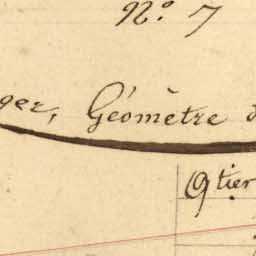 No. 7
ger, Géomètre d
Qtier